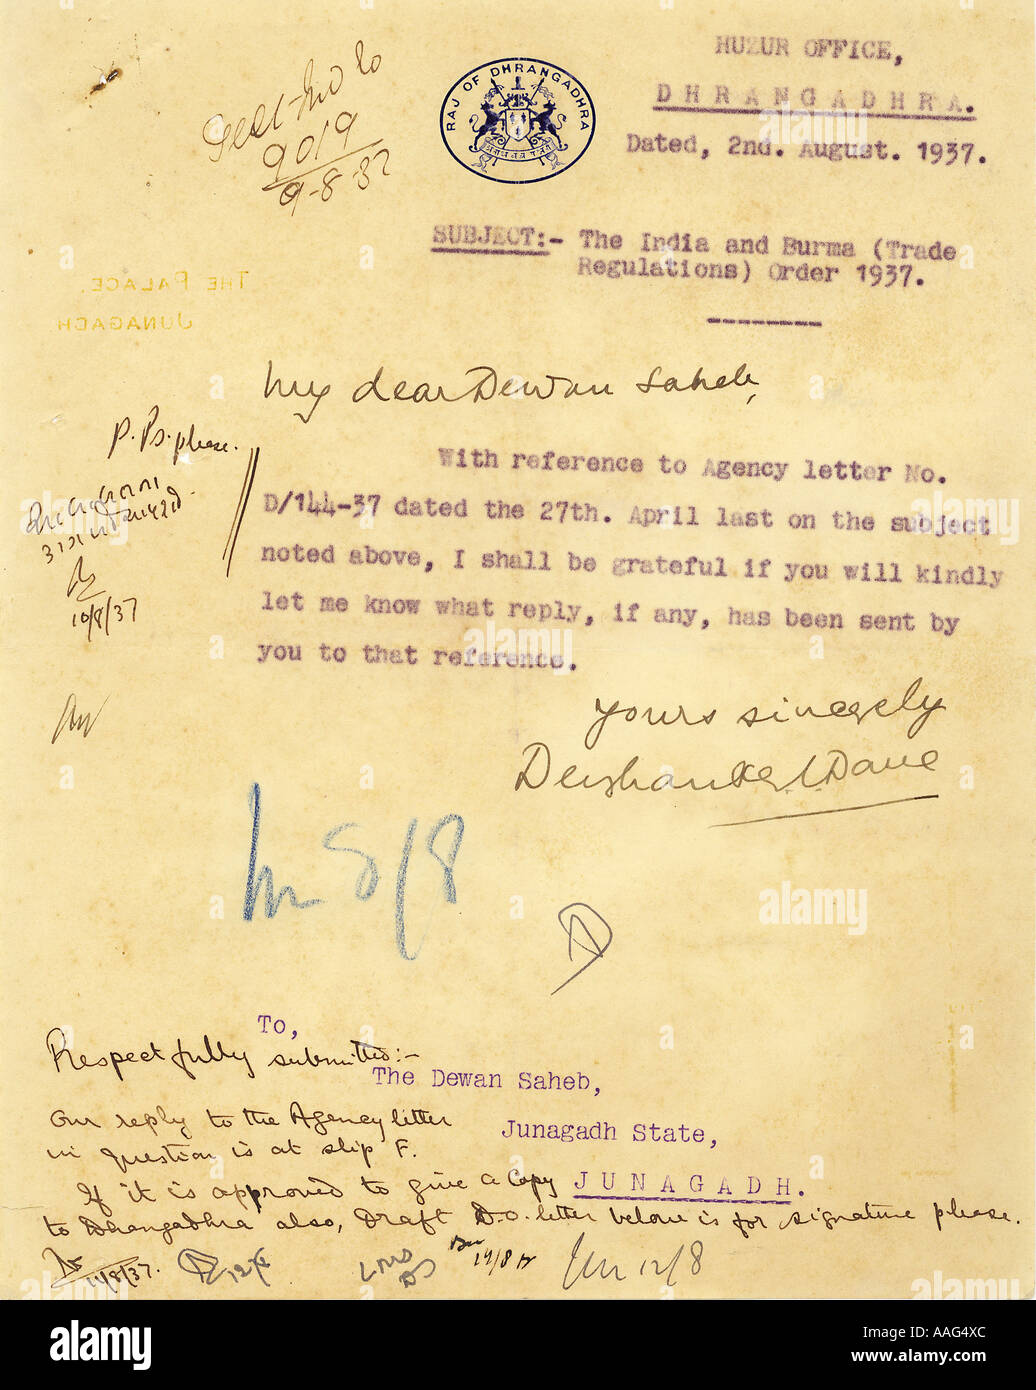 HUZUR OFFICE,
DHRANGADHRA.
Dated, 2nd. August. 1937.
RAJ OF DHRANGADHRA
9019
9-8-37
SUBJECT:- The India and Burma (Trade
Regulations) Order 1937.
THE PALACE
JUNAGADH
My dear Dewan Saheb,
P. Ps. please.
With reference to Agency letter No.
D/144-37 dated the 27th. April last on the subject
noted above, I shall be grateful if you will kindly
let me know what reply, if any, has been sent by
you to that reference.
10/8/37
yours sincerely
8/8
To,
Respectfully submitted:-
The Dewan Saheb,
Our reply to the Agency letter
Junagadh State,
in question is at slip F.
JUNAGADH.
If it is approved to give a copy
to Dhrangadhra also, Draft D.O. letter below is for signature please.
11/8/37.
12/8
alamy
Image ID: AAG4XC
www.alamy.com